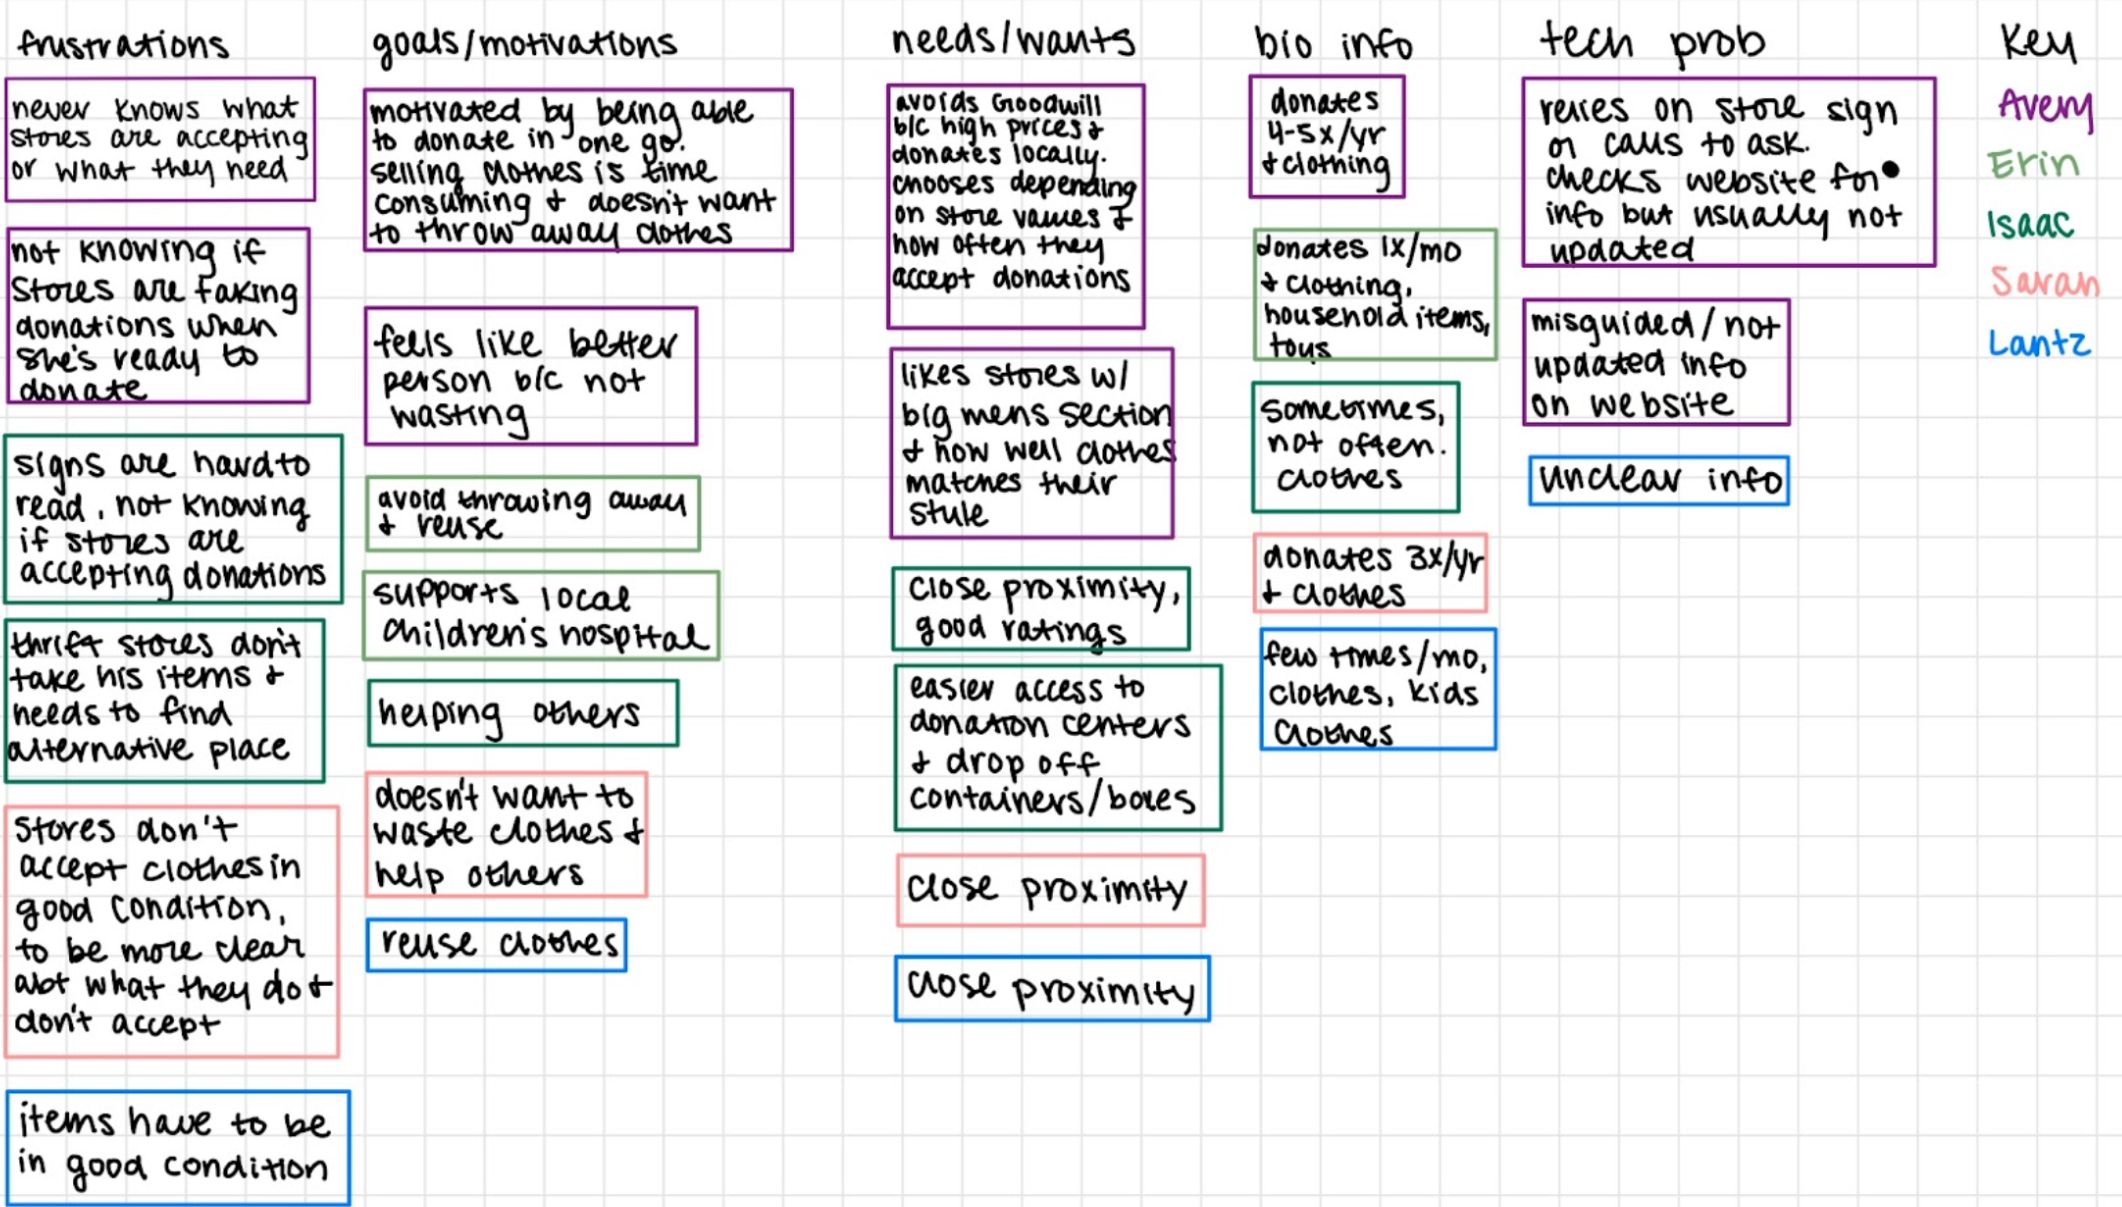 frustrations
never knows what
stores are accepting
or what they need
not knowing if
stores are taking
donations when
she's ready to
donate
signs are hard to
read, not knowing
if stores are
accepting donations
thrift stores don't
take his items &
needs to find
alternative place
stores don't
accept clothes in
good condition,
to be more clear
abt what they do &
don't accept
items have to be
in good condition
goals/motivations
motivated by being able
to donate in one go.
selling clothes is time
consuming & doesn't want
to throw away clothes
feels like better
person b/c not
wasting
avoid throwing away
& reuse
supports local
children's hospital
helping others
doesn't want to
waste clothes &
help others
reuse clothes
needs/wants
avoids Goodwill
b/c high prices &
donates locally.
chooses depending
on store values &
how often they
accept donations
likes stores w/
big mens section
& how well clothes
matches their
style
close proximity,
good ratings
easier access to
donation centers
& drop off
containers/boxes
close proximity
close proximity
bio info
donates
4-5x/yr
& clothing
donates 1x/mo
& clothing,
household items,
toys
sometimes,
not often.
clothes
donates 3x/yr
& clothes
few times/mo,
clothes, kids
clothes
tech prob
relies on store sign
or calls to ask.
checks website for
info but usually not
updated
misguided/not
updated info
on website
unclear info
Key
Avery
Erin
Isaac
Sarah
Lantz